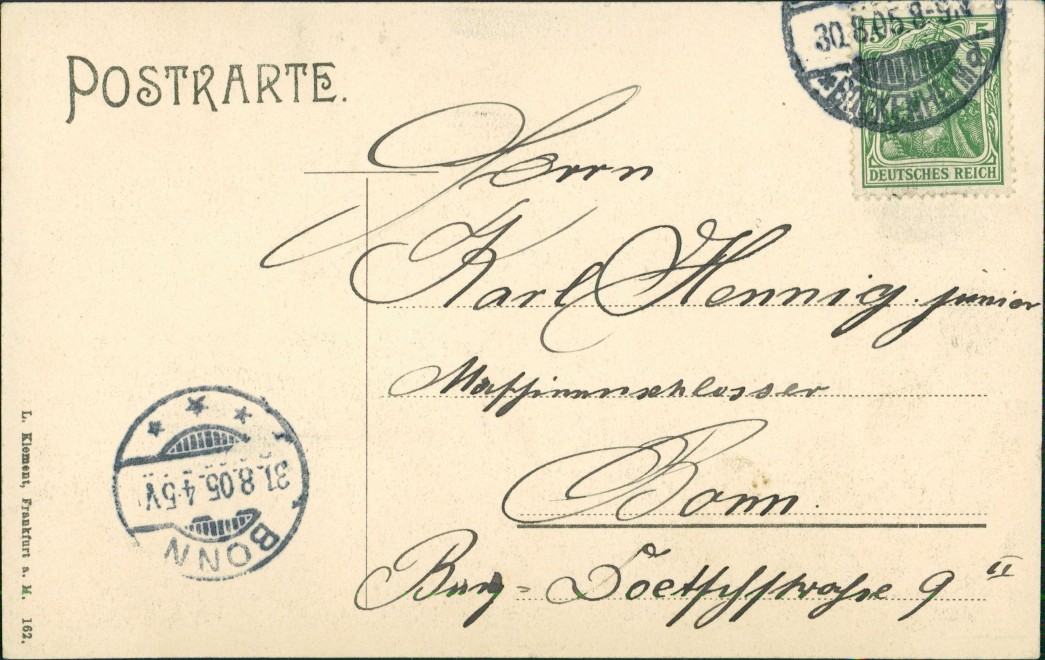 POSTKARTE.
30.8.05.8-9V
*BOCKENHEIM*
5
DEUTSCHES REICH
Herrn
Karl Hennig. junior
Maschinenschlosser
Bonn.
9 II
31.8.05.4-5V
BONN
L. Klement, Frankfurt a. M. 162.